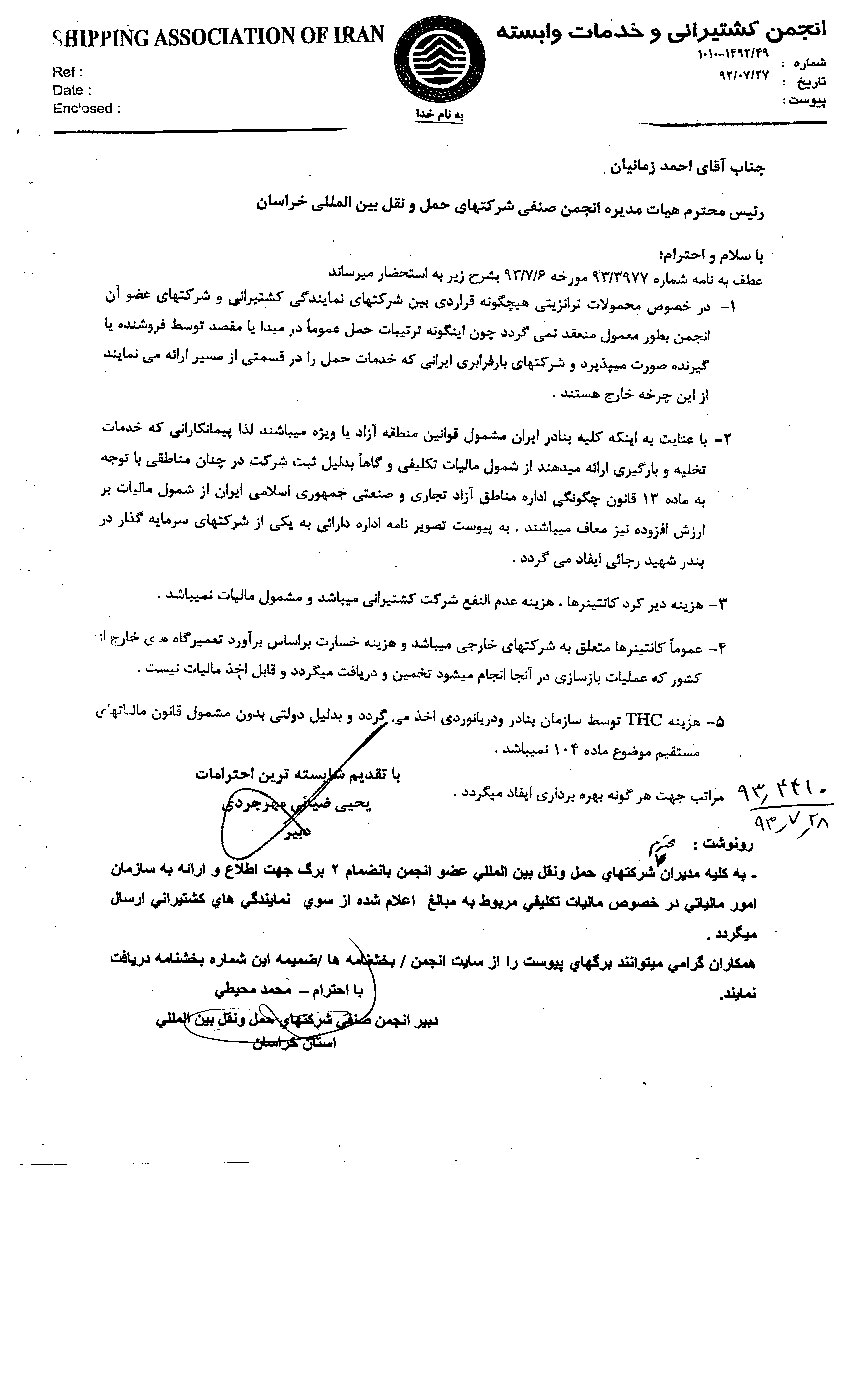 SHIPPING ASSOCIATION OF IRAN
Ref :
Date :
Enclosed :
انجمن کشتیرانی و خدمات وابسته
شماره :
تاریخ :
پیوست :
به نام خدا
جناب آقای احمد زمانیان
رئیس محترم هیات مدیره انجمن صنفی شرکتهای حمل و نقل بین المللی خراسان
با سلام و احترام؛
عطف به نامه شماره ۹۳/۳۹۷۷ مورخه ۹۳/۷/۶ بشرح زیر به استحضار میرساند
۱- در خصوص محمولات ترانزیتی هیچگونه قراردی بین شرکتهای نمایندگی کشتیرانی و شرکتهای عضو آن
انجمن بطور معمول منعقد نمی گردد چون اینگونه ترتیبات حمل عموماً در مبدا یا مقصد توسط فروشنده یا
گیرنده صورت میپذیرد و شرکتهای بارفرابری ایرانی که خدمات حمل را در قسمتی از مسیر ارائه می نمایند
از این چرخه خارج هستند .
۲- با عنایت به اینکه کلیه بنادر ایران مشمول قوانین منطقه آزاد یا ویژه میباشند لذا پیمانکارانی که خدمات
تخلیه و بارگیری ارائه میدهند از شمول مالیات تکلیفی و گاهاً بدلیل ثبت شرکت در چنان مناطقی با توجه
به ماده ۱۳ قانون چگونگی اداره مناطق آزاد تجاری و صنعتی جمهوری اسلامی ایران از شمول مالیات بر
ارزش افزوده نیز معاف میباشند . به پیوست تصویر نامه اداره دارائی به یکی از شرکتهای سرمایه گذار در
بندر شهید رجائی ایفاد می گردد .
۳- هزینه دیر کرد کانتینرها ، هزینه عدم النفع شرکت کشتیرانی میباشد و مشمول مالیات نمیباشد .
۴- عموماً کانتینرها متعلق به شرکتهای خارجی میباشد و هزینه خسارت براساس برآورد تعمیرگاه های خارج از
کشور که عملیات بازسازی در آنجا انجام میشود تخمین و دریافت میگردد و قابل اخذ مالیات نیست .
۵- هزینه THC توسط سازمان بنادر ودریانوردی اخذ می گردد و بدلیل دولتی بدون مشمول قانون مالیاتهای
مستقیم موضوع ماده ۱۰۴ نمیباشد .
با تقدیم شایسته ترین احترامات
یحیی ضیائی مهرجردی
دبیر
مراتب جهت هر گونه بهره برداری ایفاد میگردد .
۹۳٫۴۴۱۰
۹۳٫۷٫۲۸
رونوشت :
محترم
ـ به کلیه مدیران شرکتهاي حمل ونقل بین المللي عضو انجمن بانضمام ۲ برگ جهت اطلاع و ارائه به سازمان
امور مالیاتي در خصوص مالیات تکلیفي مربوط به مبالغ اعلام شده از سوي نمایندگي هاي کشتیراني ارسال
میگردد .
همکاران گرامي میتوانند برگهاي پیوست را از سایت انجمن / بخشنامه ها /ضمیمه این شماره بخشنامه دریافت
نمایند.
با احترام – محمد محیطي
دبیر انجمن صنفي شرکتهاي حمل ونقل بین المللي
استان خراسان